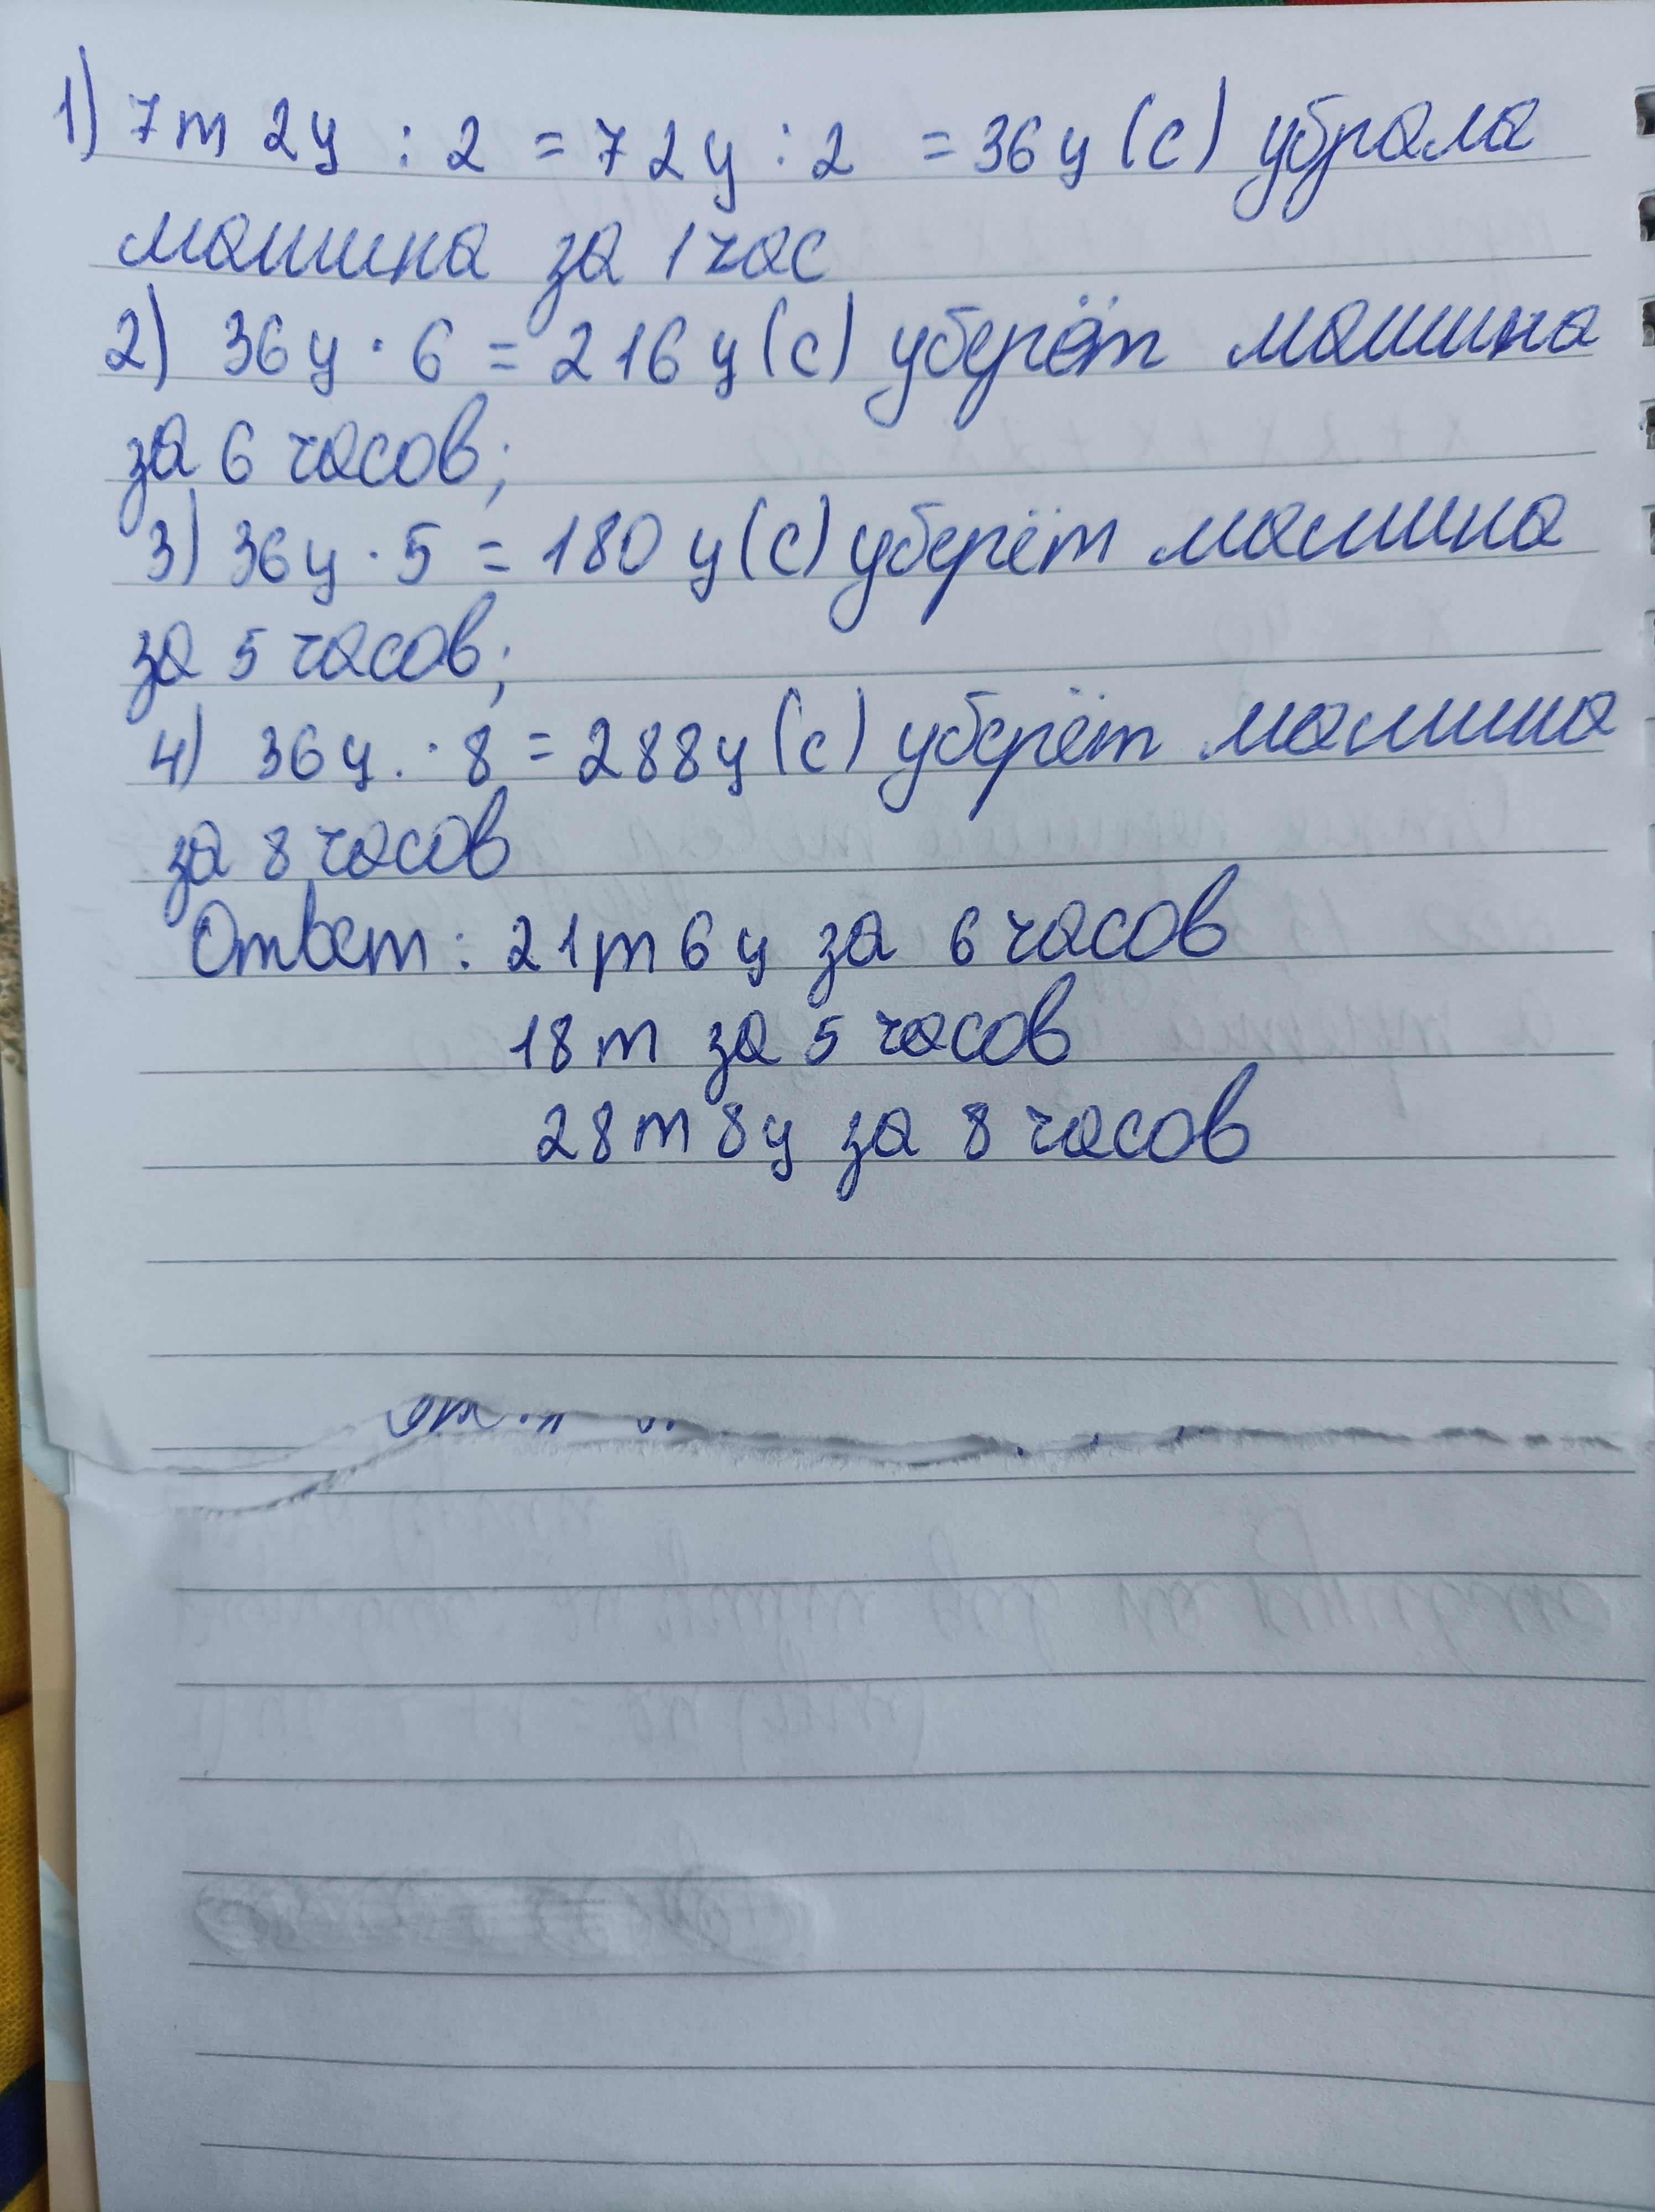 1) 7т 2ц : 2 = 72ц : 2 = 36ц (с) убрала
машина за 1 час
2) 36ц · 6 = 216ц (с) уберёт машина
за 6 часов;
3) 36ц · 5 = 180 ц (с) уберёт машина
за 5 часов;
4) 36ц. · 8 = 288ц (с) уберёт машина
за 8 часов
Ответ: 21т 6ц за 6 часов
18т за 5 часов
28т 8ц за 8 часов